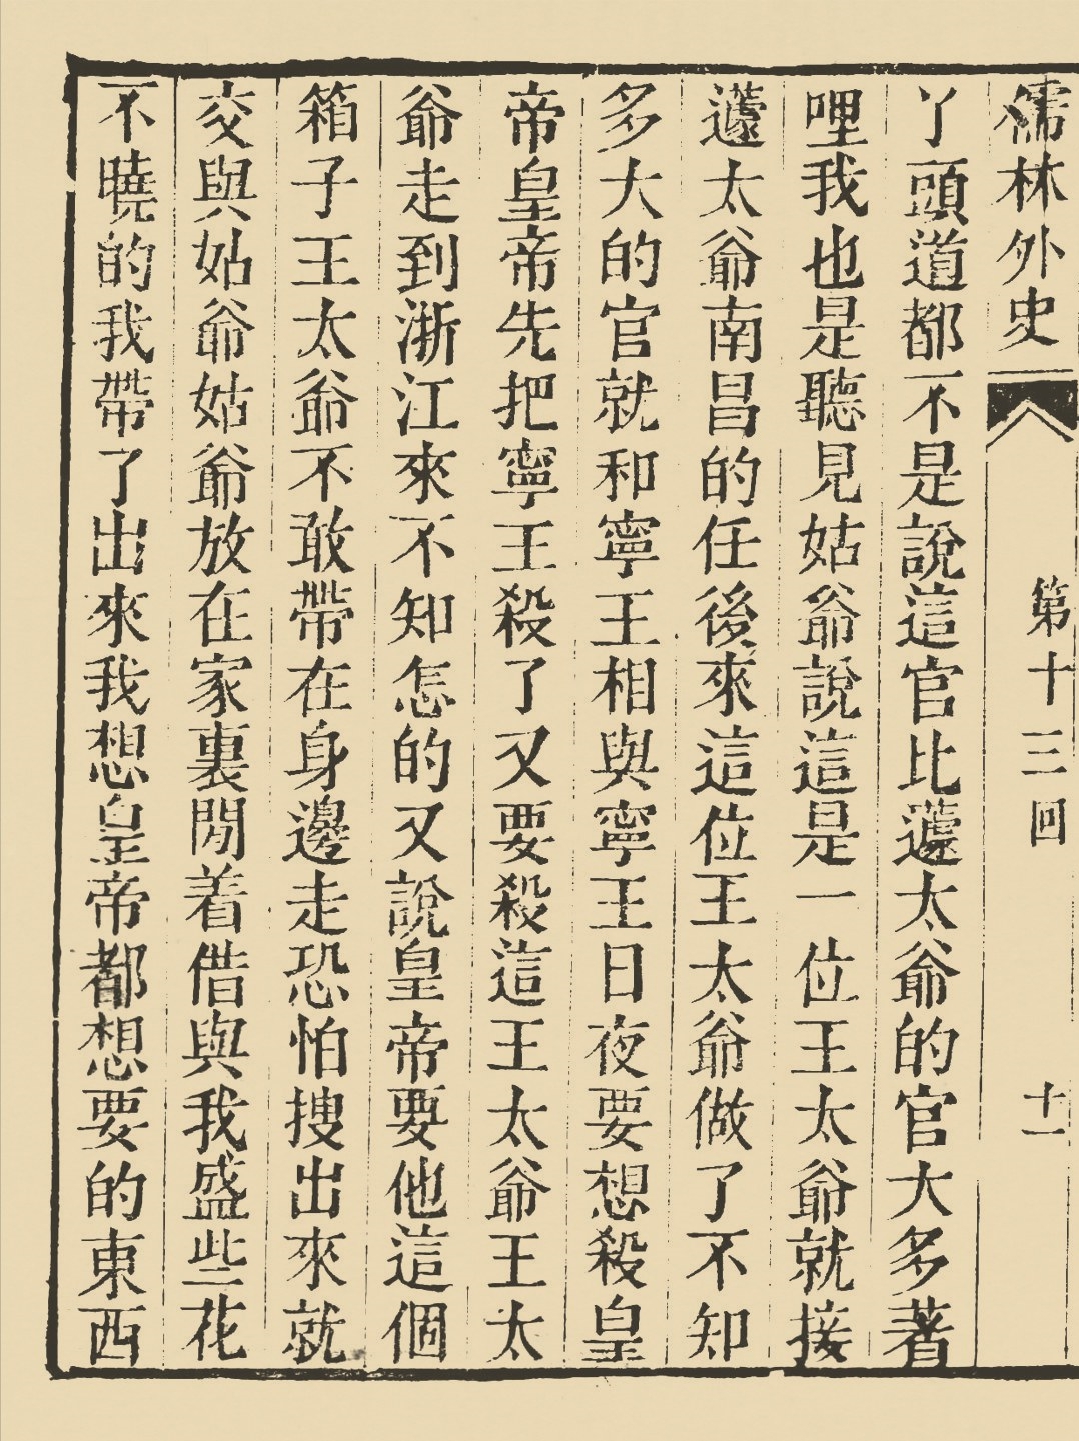 儒林外史 第十三回 十一
丫頭道都不是說這官比蘧太爺的官大多著
哩我也是聽見姑爺說這是一位王太爺就接
蘧太爺南昌的任後來這位王太爺做了不知
多大的官就和寧王相與寧王日夜要想殺皇
帝皇帝先把寧王殺了又要殺這王太爺王太
爺走到浙江來不知怎的又說皇帝要他這個
箱子王太爺不敢帶在身邊走恐怕搜出來就
交與姑爺姑爺放在家裏閒着借與我盛些花
不曉的我帶了出來我想皇帝都想要的東西